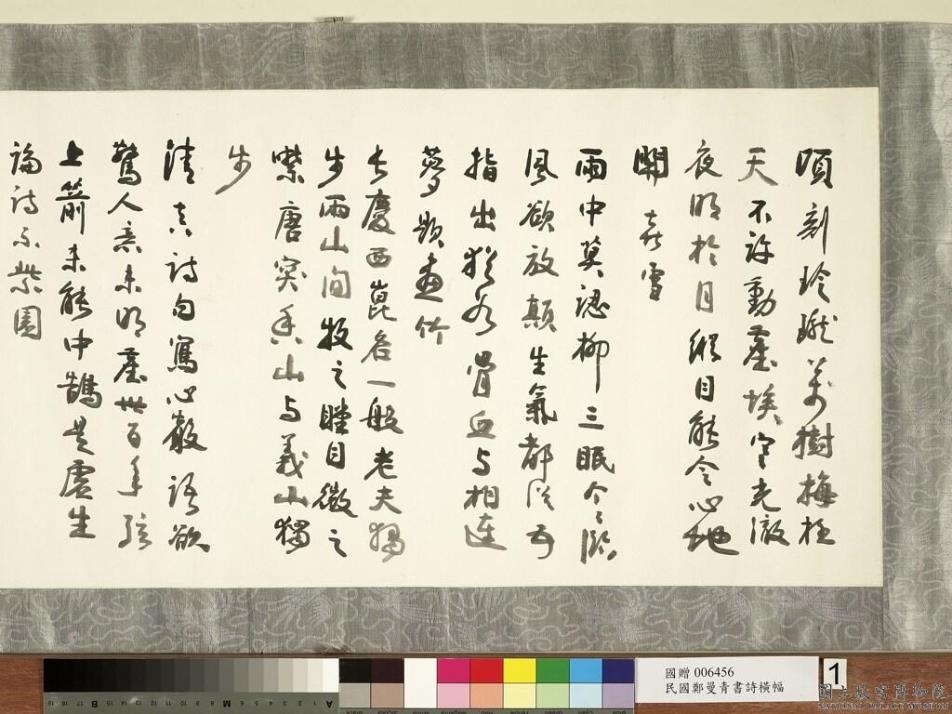 頃刻玲瓏萬樹梅枉
天不許動塵埃寒光澈
夜明於月縱目能令心地
開 喜雪
雨中莫認柳三眠今臨
風欲放顛生氣都從吾
指出猶吾骨血与相連
夢題畫竹
長慶西崑各一般老夫獨
步兩山間牧之瞠目微之
噤唐突香山与義山獨
步
清真詩句寫心聲語欲
驚人意未明塵世百年弦
上箭未能中鵠是虛生
論詩示紫園
國贈 006456
民國鄭曼青書詩橫幅
1
國立故宮博物院
NATIONAL PALACE MUSEUM